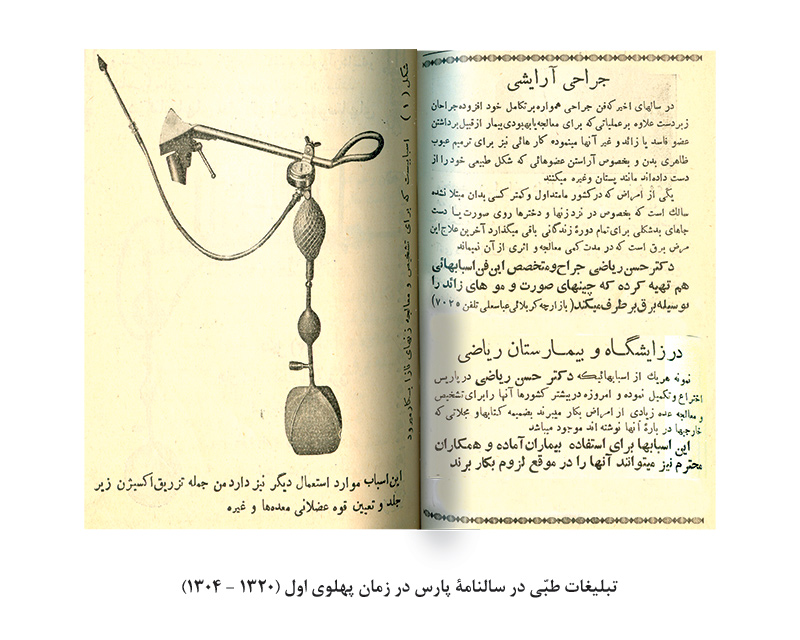 جراحی آرایشی
در سالهای اخیر که فن جراحی همواره بر تکامل خود افزوده جراحان
زبردست علاوه بر عملیاتی که برای معالجه یا بهبودی بیمار از قبیل برداشتن
عضو فاسد یا زائد و غیر آنها مینمودند کار هائی نیز برای ترمیم عیوب
ظاهری بدن و بخصوص آراستن عضوهائی که شکل طبیعی خود را از
دست داده‌اند مانند پستان و غیره میکنند
یکی از امراض که در کشور ما متداول و کمتر کسی بدان مبتلا نشده
سالك است که بخصوص در نزد زنها و دخترها روی صورت یا دست
جاهای بدشکلی برای تمام دورهٔ زندگانی باقی میگذارد آخرین علاج این
مرض برق است که در مدت کمی معالجه و اثری از آن نمیماند
دکتر حسن ریاضی جراح و متخصص این فن اسبابهائی
هم تهیه کرده که چینهای صورت و مو های زائد را
بوسیله برق بر طرف میکند (بازارچه کربلائی عباسعلی تلفن ۷۰۲۵)
در زایشگاه و بیمارستان ریاضی
نمونه هریك از اسبابهائیکه دکتر حسن ریاضی در پاریس
اختراع و تکمیل نموده و امروزه در بیشتر کشورها آنها را برای تشخیص
و معالجه عده زیادی از امراض بکار میبرند بضمیمه کتابها و مجلاتی که
خارجیها در بارهٔ آنها نوشته اند موجود میباشد
این اسبابها برای استفاده بیماران آماده و همکاران
محترم نیز میتوانند آنها را در موقع لزوم بکار برند
شکل (۱) اسبابیست که برای تشخیص و معالجه زنهای نازا بکار میرود
این اسباب موارد استعمال دیگر نیز دارد من جمله تزریق اکسیژن زیر
جلد و تعیین قوه عضلانی معده‌ها و غیره
تبلیغات طبّی در سالنامهٔ پارس در زمان پهلوی اول (۱۳۲۰ - ۱۳۰۴)